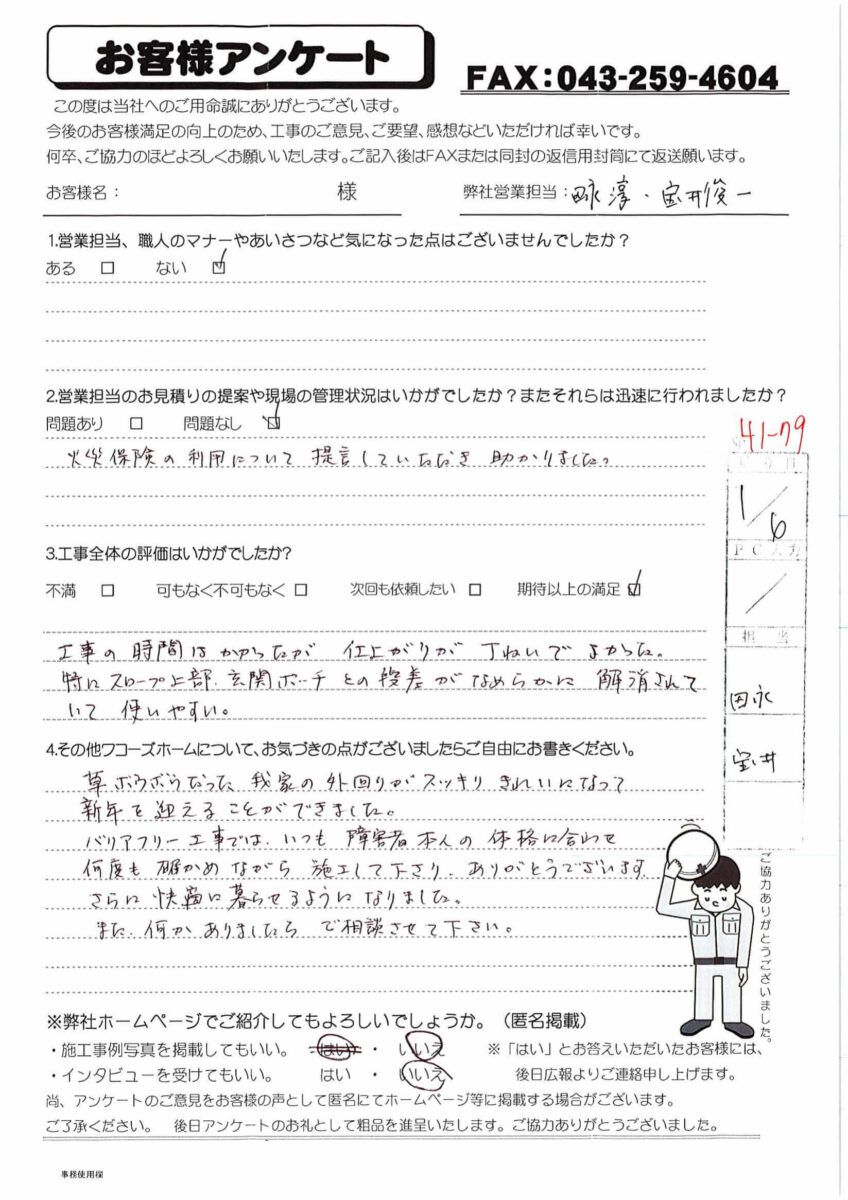 お客様アンケート
FAX:043-259-4604
この度は当社へのご用命誠にありがとうございます。
今後のお客様満足の向上のため、工事のご意見、ご要望、感想などいただければ幸いです。
何卒、ご協力のほどよろしくお願いいたします。ご記入後はFAXまたは同封の返信用封筒にて返送願います。
お客様名： 様 弊社営業担当：田永 淳・宝井俊一
1.営業担当、職人のマナーやあいさつなど気になった点はございませんでしたか？
ある □ ない ☑
2.営業担当のお見積りの提案や現場の管理状況はいかがでしたか？またそれらは迅速に行われましたか？
問題あり □ 問題なし ☑
火災保険の利用について提言していただき助かりました。
41-79
1/6
PC入力
／
担当
田永
宝井
3.工事全体の評価はいかがでしたか?
不満 □ 可もなく不可もなく □ 次回も依頼したい □ 期待以上の満足 ☑
工事の時間はかかったが 仕上がりが丁ねいでよかった。
特にスロープ上部、玄関ポーチとの段差がなめらかに解消されて
いて使いやすい。
4.その他ワコーズホームについて、お気づきの点がございましたらご自由にお書きください。
草ボウボウだった我家の外回りがスッキリきれいになって
新年を迎えることができました。
バリアフリー工事では、いつも障害者本人の体格に合わせ
何度も確かめながら施工して下さり、ありがとうございます
さらに快適に暮らせるようになりました。
また、何かありましたらご相談させて下さい。
ご協力ありがとうございました。
※弊社ホームページでご紹介してもよろしいでしょうか。（匿名掲載）
・施工事例写真を掲載してもいい。 はい ・ いいえ ※「はい」とお答えいただいたお客様には、
・インタビューを受けてもいい。 はい ・ いいえ 後日広報よりご連絡申し上げます。
尚、アンケートのご意見をお客様の声として匿名にてホームページ等に掲載する場合がございます。
ご了承ください。 後日アンケートのお礼として粗品を進呈いたします。ご協力ありがとうございました。
事務使用欄